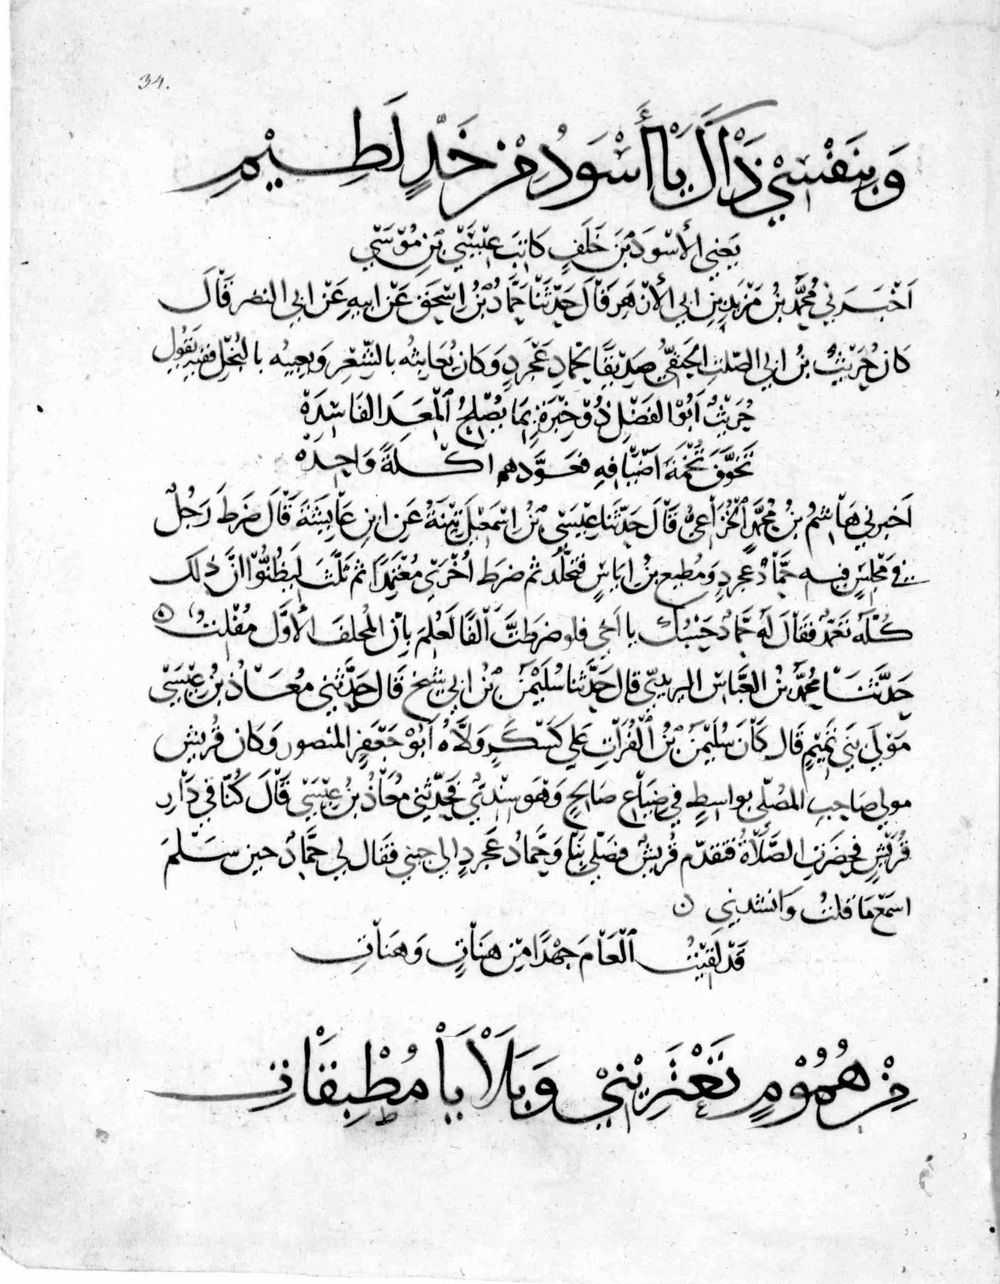 34.
وَبِنَفْسِي ذَاكَ يَا أَسْوَدُ مِنْ خَدٍّ لَطِيمِ
يَعْنِي الأَسْوَدَ بْنَ خَلَفٍ كَاتِبَ عِيْسَى بْنِ مُوْسَى
أَخْبَرَنِي مُحَمَّدُ بْنُ مَزْيَدِ بْنِ أَبِي الأَزْهَرِ قَالَ حَدَّثَنَا حَمَّادُ بْنُ إِسْحَقَ عَنْ أَبِيهِ عَنْ أَبِي النضر قَالَ
كَانَ حُرَيْثُ بْنُ أَبِي الصَّلْتِ الحَنَفِيُّ صَدِيْقًا لِحَمَّادِ عَجْرَدٍ وَكَانَ يُعَابِثُهُ بِالشِّعْرِ وَيَعِيبُهُ بِالبُخْلِ فَفِيهِ يَقُولُ
حُرَيْثُ أَبُوْ الفَضْلِ ذُوْ خِبْرَةٍ بِمَا يُصْلِحُ الْمِعَدَ الفَاسِدَهْ
تَخَوَّفَ تُخْمَةَ أَضْيَافِهِ فَعَوَّدَهُم أَكْلَةً وَاحِدَهْ
أَخْبَرَنِي هَاشِمُ بْنُ مُحَمَّدٍ الْخُزَاعِيُّ قَالَ حَدَّثَنَا عِيْسَى بْنُ إِسْمَعِيلَ تِيْنَةُ عَنِ ابْنِ عَائِشَةَ قَالَ ضَرَطَ رَجُلٌ
فِي مَجْلِسٍ فِيهِ حَمَّادُ عَجْرَدٍ وَمُطِيعُ بْنُ إِيَاسٍ فَتَجَلَّدَ ثُمَّ ضَرَطَ أُخْرَى مُتَعَمِّدًا ثُمَّ ثَلَّثَ لِيَظُنُّوْا أَنَّ ذَلِكَ
كُلَّهُ تَعَمُّدٌ فَقَالَ لَهُ حَمَّادُ حَسْبُكَ يَا أَخِي فَلَو ضَرَطْتَ أَلْفًا لَعُلِمَ بِأَنَّ الْمُخْلِفَ الأَوَّلَ مُفْلِتٌ ۞
حَدَّثَنَا مُحَمَّدُ بْنُ العَبَّاسِ اليَزِيدِيّ قَالَ حَدَّثَنَا سُلَيْمَنُ بْنُ أَبِي شَيْخٍ قَالَ حَدَّثَنِي مُعَاذُ بْنُ عِيْسَى
مَوْلَى بَنِي تَمِيْمٍ قَالَ كَانَ سُلَيْمَنُ بْنُ الْفُرَاتِ عَلَى كَسْكَرٍ وَلَّاهُ أَبُوْ جَعْفَرٍ المَنْصُور وَكَانَ قُرَيْشٌ
مَوْلَى صَاحِبِ المُصَلَّى بِوَاسِطٍ فِي ضِيَاعِ صَالِحٍ وَهُوَ سِنْدِيٌّ فَحَدَّثَنِي مُعَاذُ بْنُ عِيْسَى قَالَ كُنَّا فِي دَارِ
قُرَيْشٍ فَحَضَرَتِ الصَّلَاةُ فَتَقَدَّمَ قُرَيْشٌ فَصَلَّى بِنَا وَحَمَّادُ عَجْرَدٍ إِلَى جَنْبِي فَقَالَ لِي حَمَّادُ حِينَ سَلَّمَ
اسْمَعْ مَا قُلْتُ وَأَنْشَدَنِي ۞
قَدْ لَقِيْتُ الْعَامَ جَهْدًا مِنْ هَنَاتٍ وَهَنَاتِ
مِنْ هُمُوْمٍ تَعْتَرِيْنِيْ وَبَلَايَا مُطْبِقَاتِ